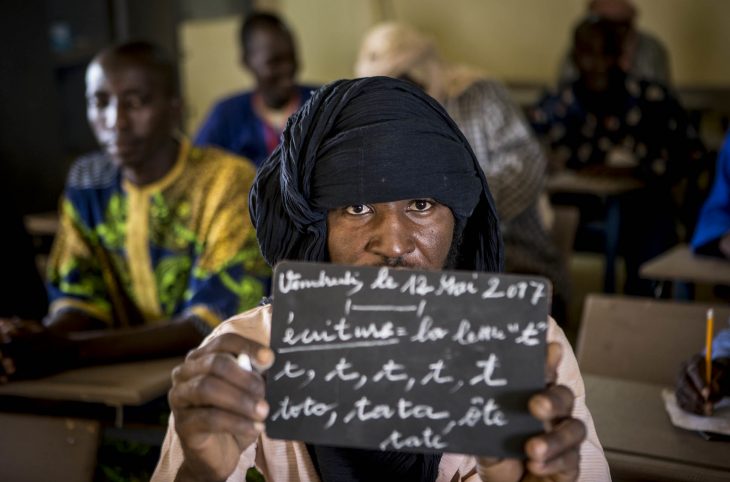 Vendredi le 12 Mai 2017
écriture = la lettre "t"
t, t, t, t, t
toto, tata, ôte
taté